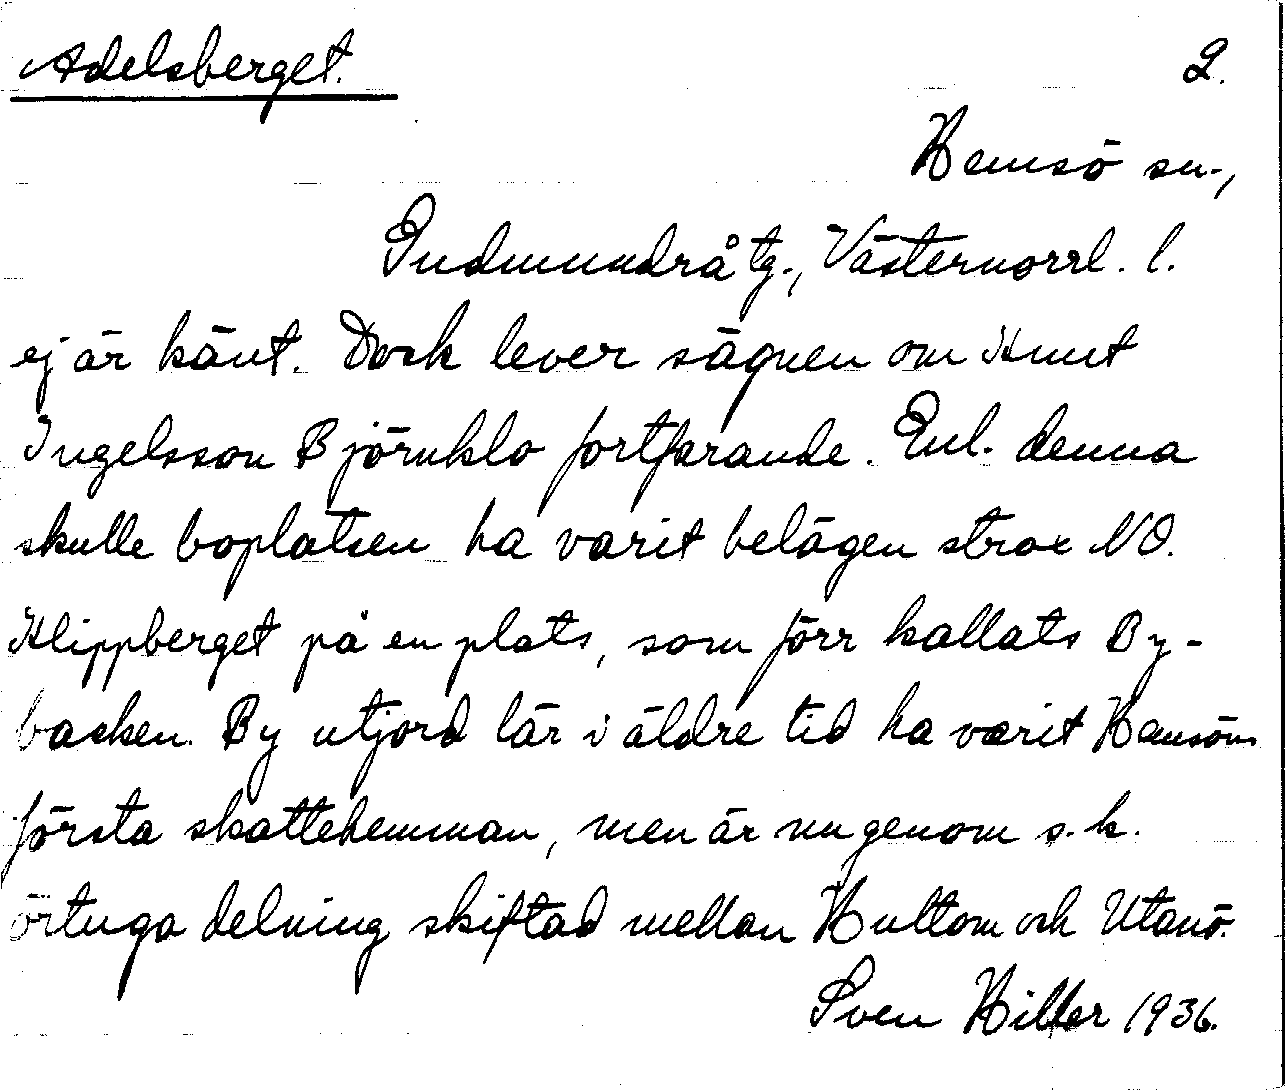 Adelsberget. 2.
Hemsö sn.,
Gudmundrå tg., Västernorrl. l.
ej är känt. Dock lever sägnen om Knut
Ingelsson Björnklo fortfarande. Enl. denna
skulle boplatsen ha varit belägen strax NO.
Klippberget på en plats, som förr kallats By-
backen. By utjord lär i äldre tid ha varit Hemsöns
första skattehemman, men är nu genom s.k.
örtuga delning skiftad mellan Hultom och Utanö.
Sven Hiller 1936.